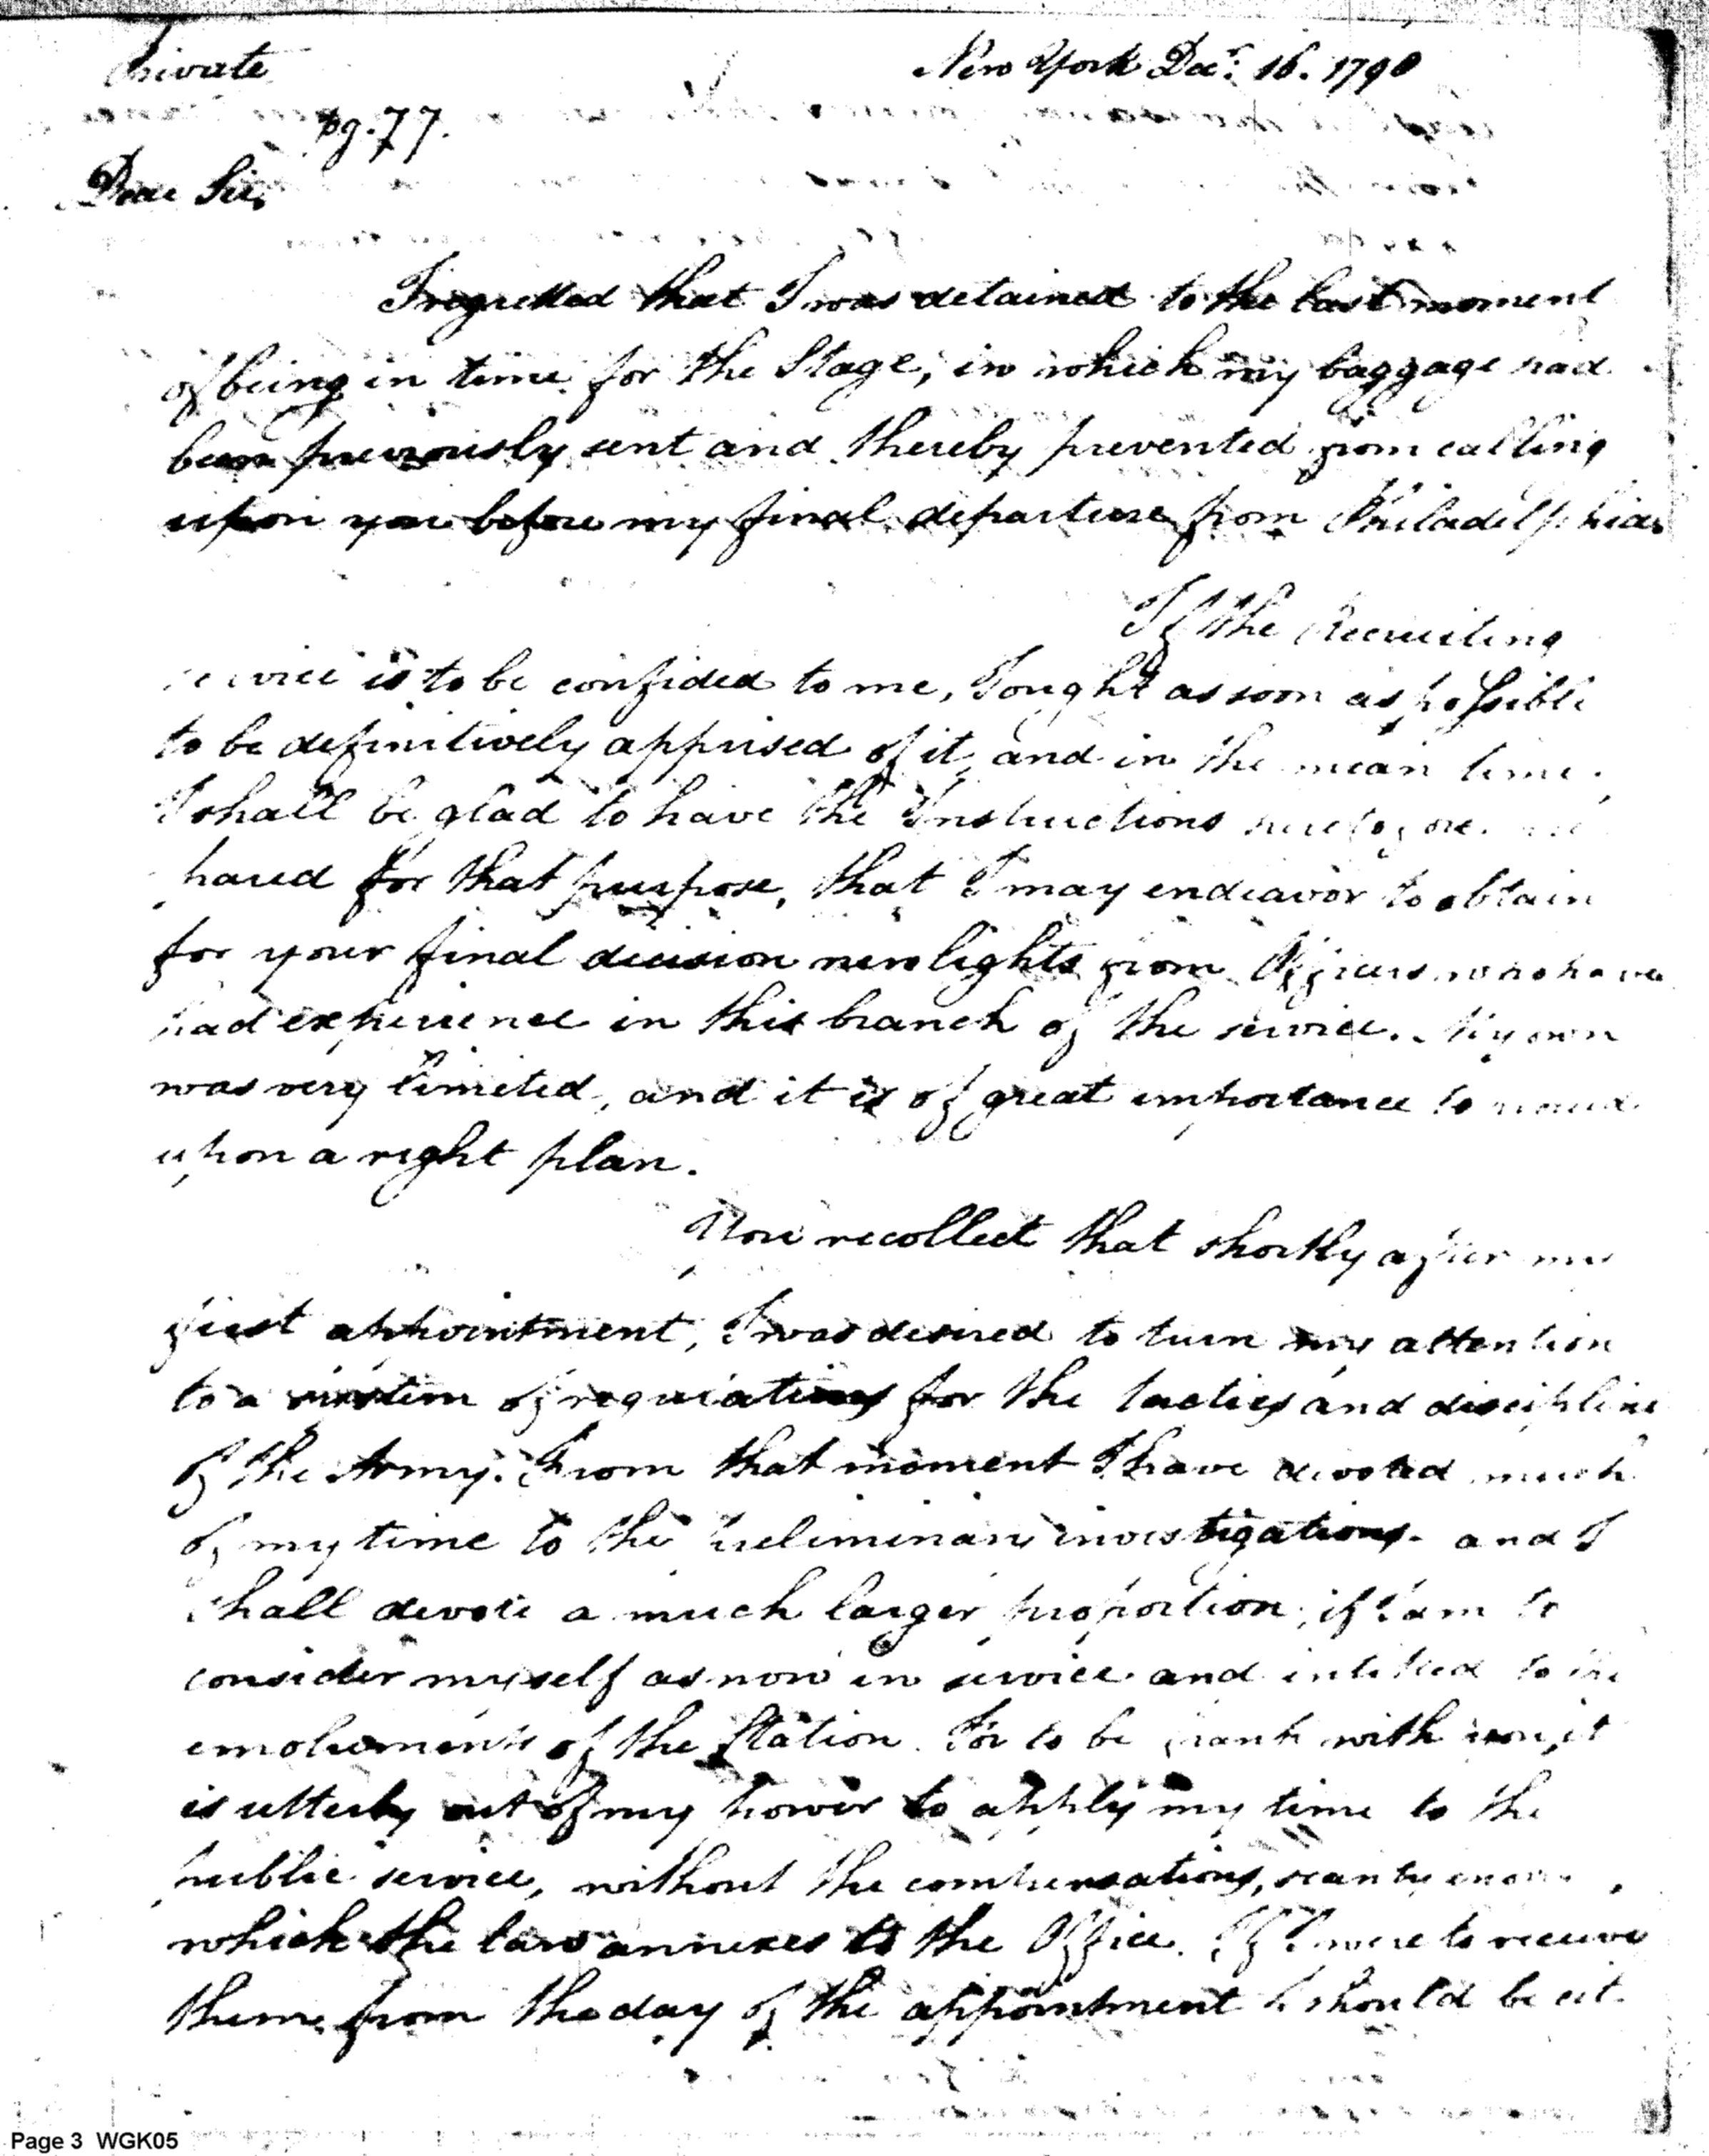 Private
New York Decr. 16. 1798
pg. 77.
Dear Sir,
I regretted that I was detained to the last moment
of being in time for the Stage, in which my baggage had
been previously sent and thereby prevented from calling
upon you before my final departure from Philadelphia.
If the Recruiting
service is to be confided to me, I ought as soon as possible
to be definitively apprised of it, and in the mean time,
I shall be glad to have the Instructions heretofore
for that purpose, that I may endeavor to obtain
for your final decision new lights from Officers who have
had experience in this branch of the service. My own
was very limited, and it is of great importance to
upon a right plan.
You recollect that shortly after my
first appointment, I was desired to turn my attention
to a system of regulations for the tactics and discipline
of the Army. From that moment I have devoted much
of my time to the preliminary investigations. and I
shall devote a much larger proportion, if I am to
consider myself as now in service and intitled to the
emoluments of the Station. For to be frank with you, it
is utterly out of my power to apply my time to the
public service, without the compensations, scanty enough,
which the law annexes to the Office. If I were to receive
them from the day of the appointment I should be at
Page 3 WGK05